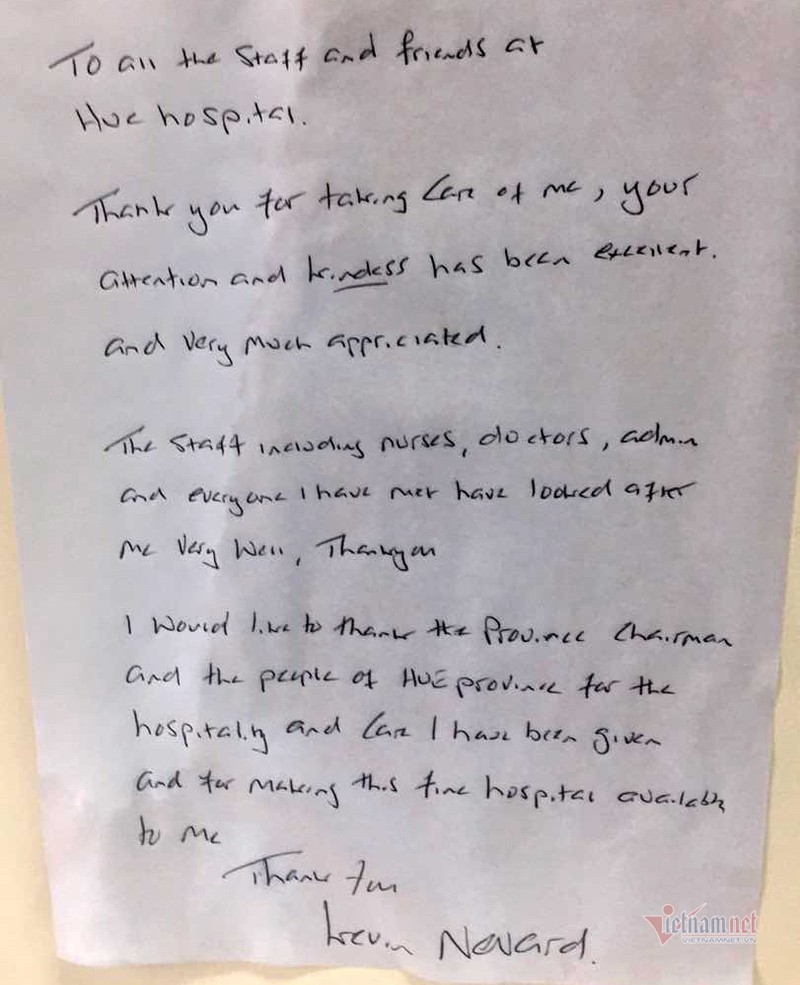 To all the Staff and friends at
Hue hospital.
Thank you for taking care of me, your
attention and kindess has been excellent.
and very much appriciated.
The Staff including nurses, doctors, admin
and everyone I have met have looked after
me very well, Thankyou
I would like to thank the Province Chairman
and the people of HUE province for the
hospitality and care I have been given
and for making this fine hospital available
to me
Thank You
Kevin Nevard.
Vietnamnet
VIETNAMNET.VN